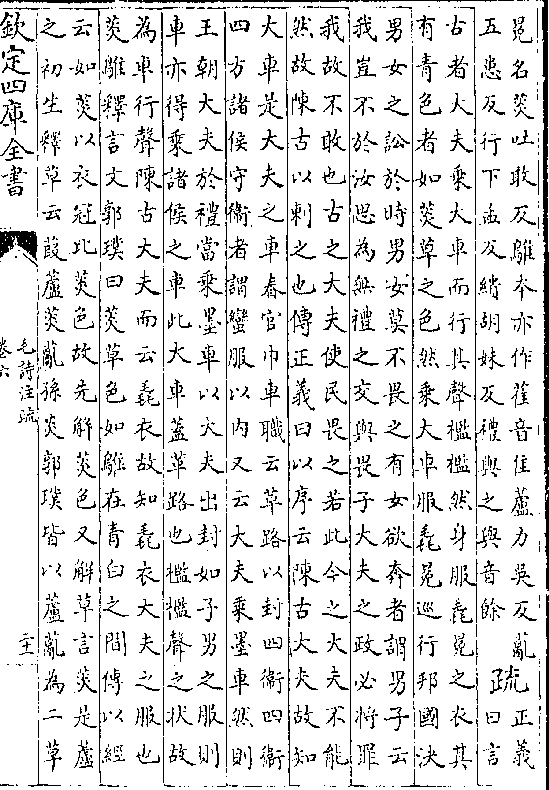 冕名菼吐敢反鵻本亦作萑音隹蘆力吳反薍
五患反行下孟反綪胡妹反禮與之與音餘 疏正義曰言
古者大夫乘大車而行其聲檻檻然身服毳冕之衣其
有青色者如菼草之色然乘大車服毳冕巡行邦國決
男女之訟於時男女莫不畏之有女欲奔者謂男子云
我豈不於汝思為無禮之交與畏子大夫之政必將罪
我故不敢也古之大夫使民畏之若此今之大夫不能
然故陳古以刺之也傳正義曰以序云陳古大夫故知
大車是大夫之車春官巾車職云革路以封四衛四衛
四方諸侯守衛者謂蠻服以內又云大夫乘墨車然則
王朝大夫於禮當乘墨車以大夫出封如子男之服則
車亦得乘諸侯之車此大車蓋革路也檻檻聲之狀故
為車行聲陳古大夫而云毳衣故知毳衣大夫之服也
菼鵻釋言文郭璞曰菼草色如鵻在青白之間傳以經
云如菼以衣冠比菼色故先解菼色又解草言菼是蘆
之初生釋草云葭蘆菼薍孫炎郭璞皆以蘆薍為二草
欽定四庫全書
毛詩注疏
卷六